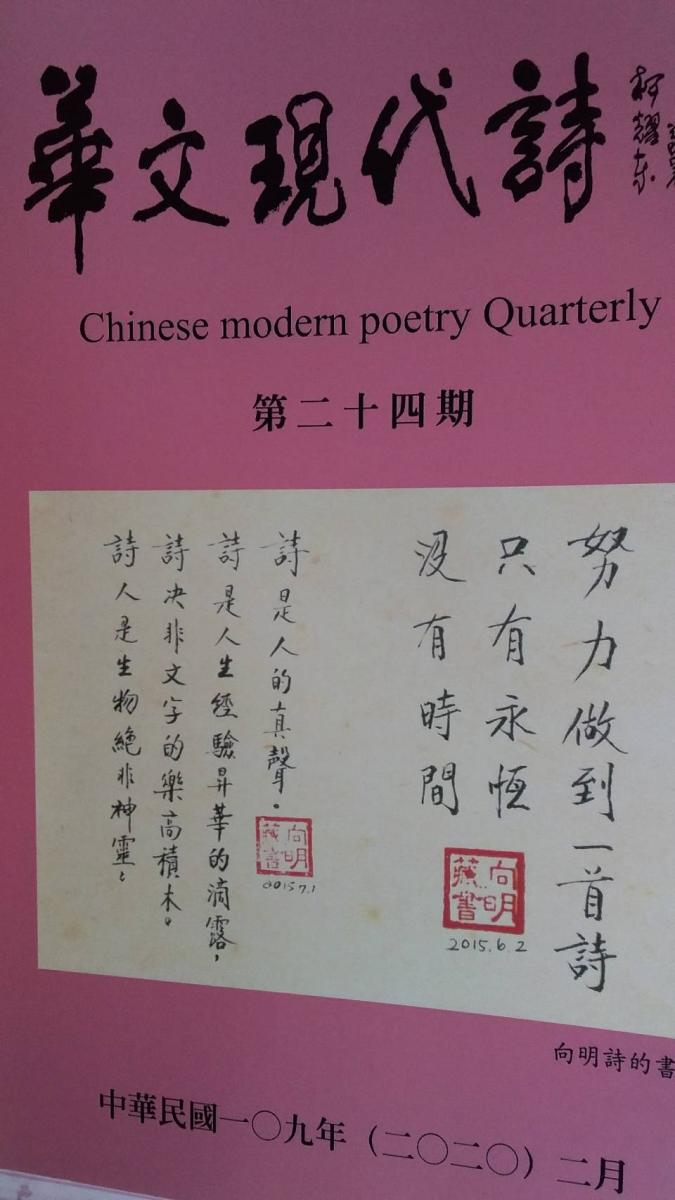 華文現代詩
柯耀東
Chinese modern poetry Quarterly
第二十四期
努力做到一首詩
只有永恆
沒有時間
向明
藏書
2015.6.2
詩是人的真聲。
詩是人生經驗昇華的滴露，
詩決非文字的樂高積木。
詩人是生物絕非神靈。
向明
藏書
2015.7.1
向明詩的書
中華民國一〇九年（二〇二〇）二月